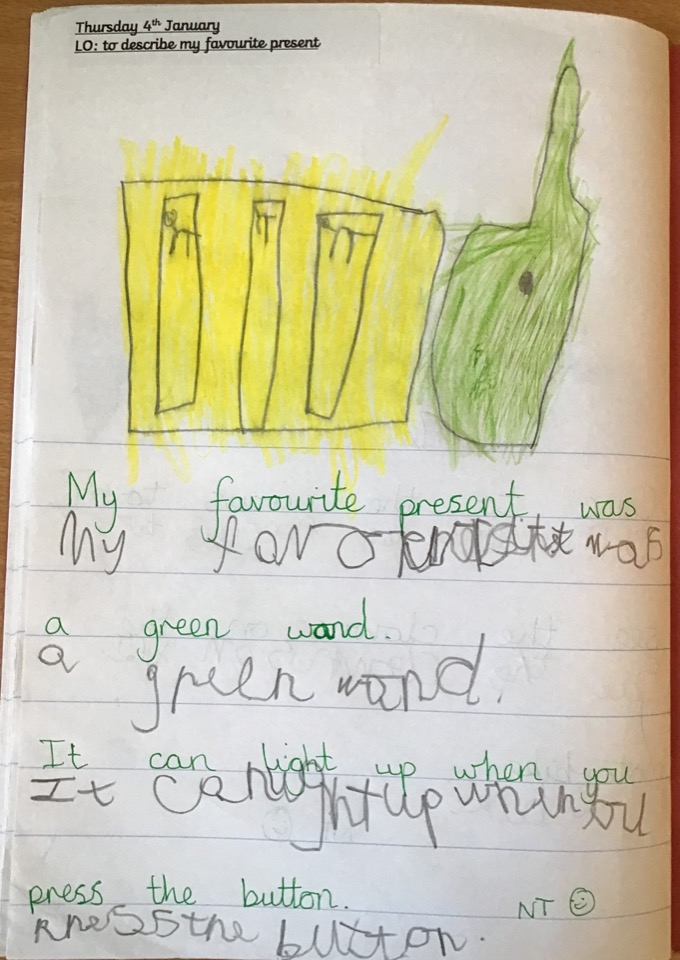 Thursday 4th January
LO: to describe my favourite present
My favourite present was
My was
a green wand.
a green wand.
It can light up when you
It can up
press the button. NT ☺
the button.